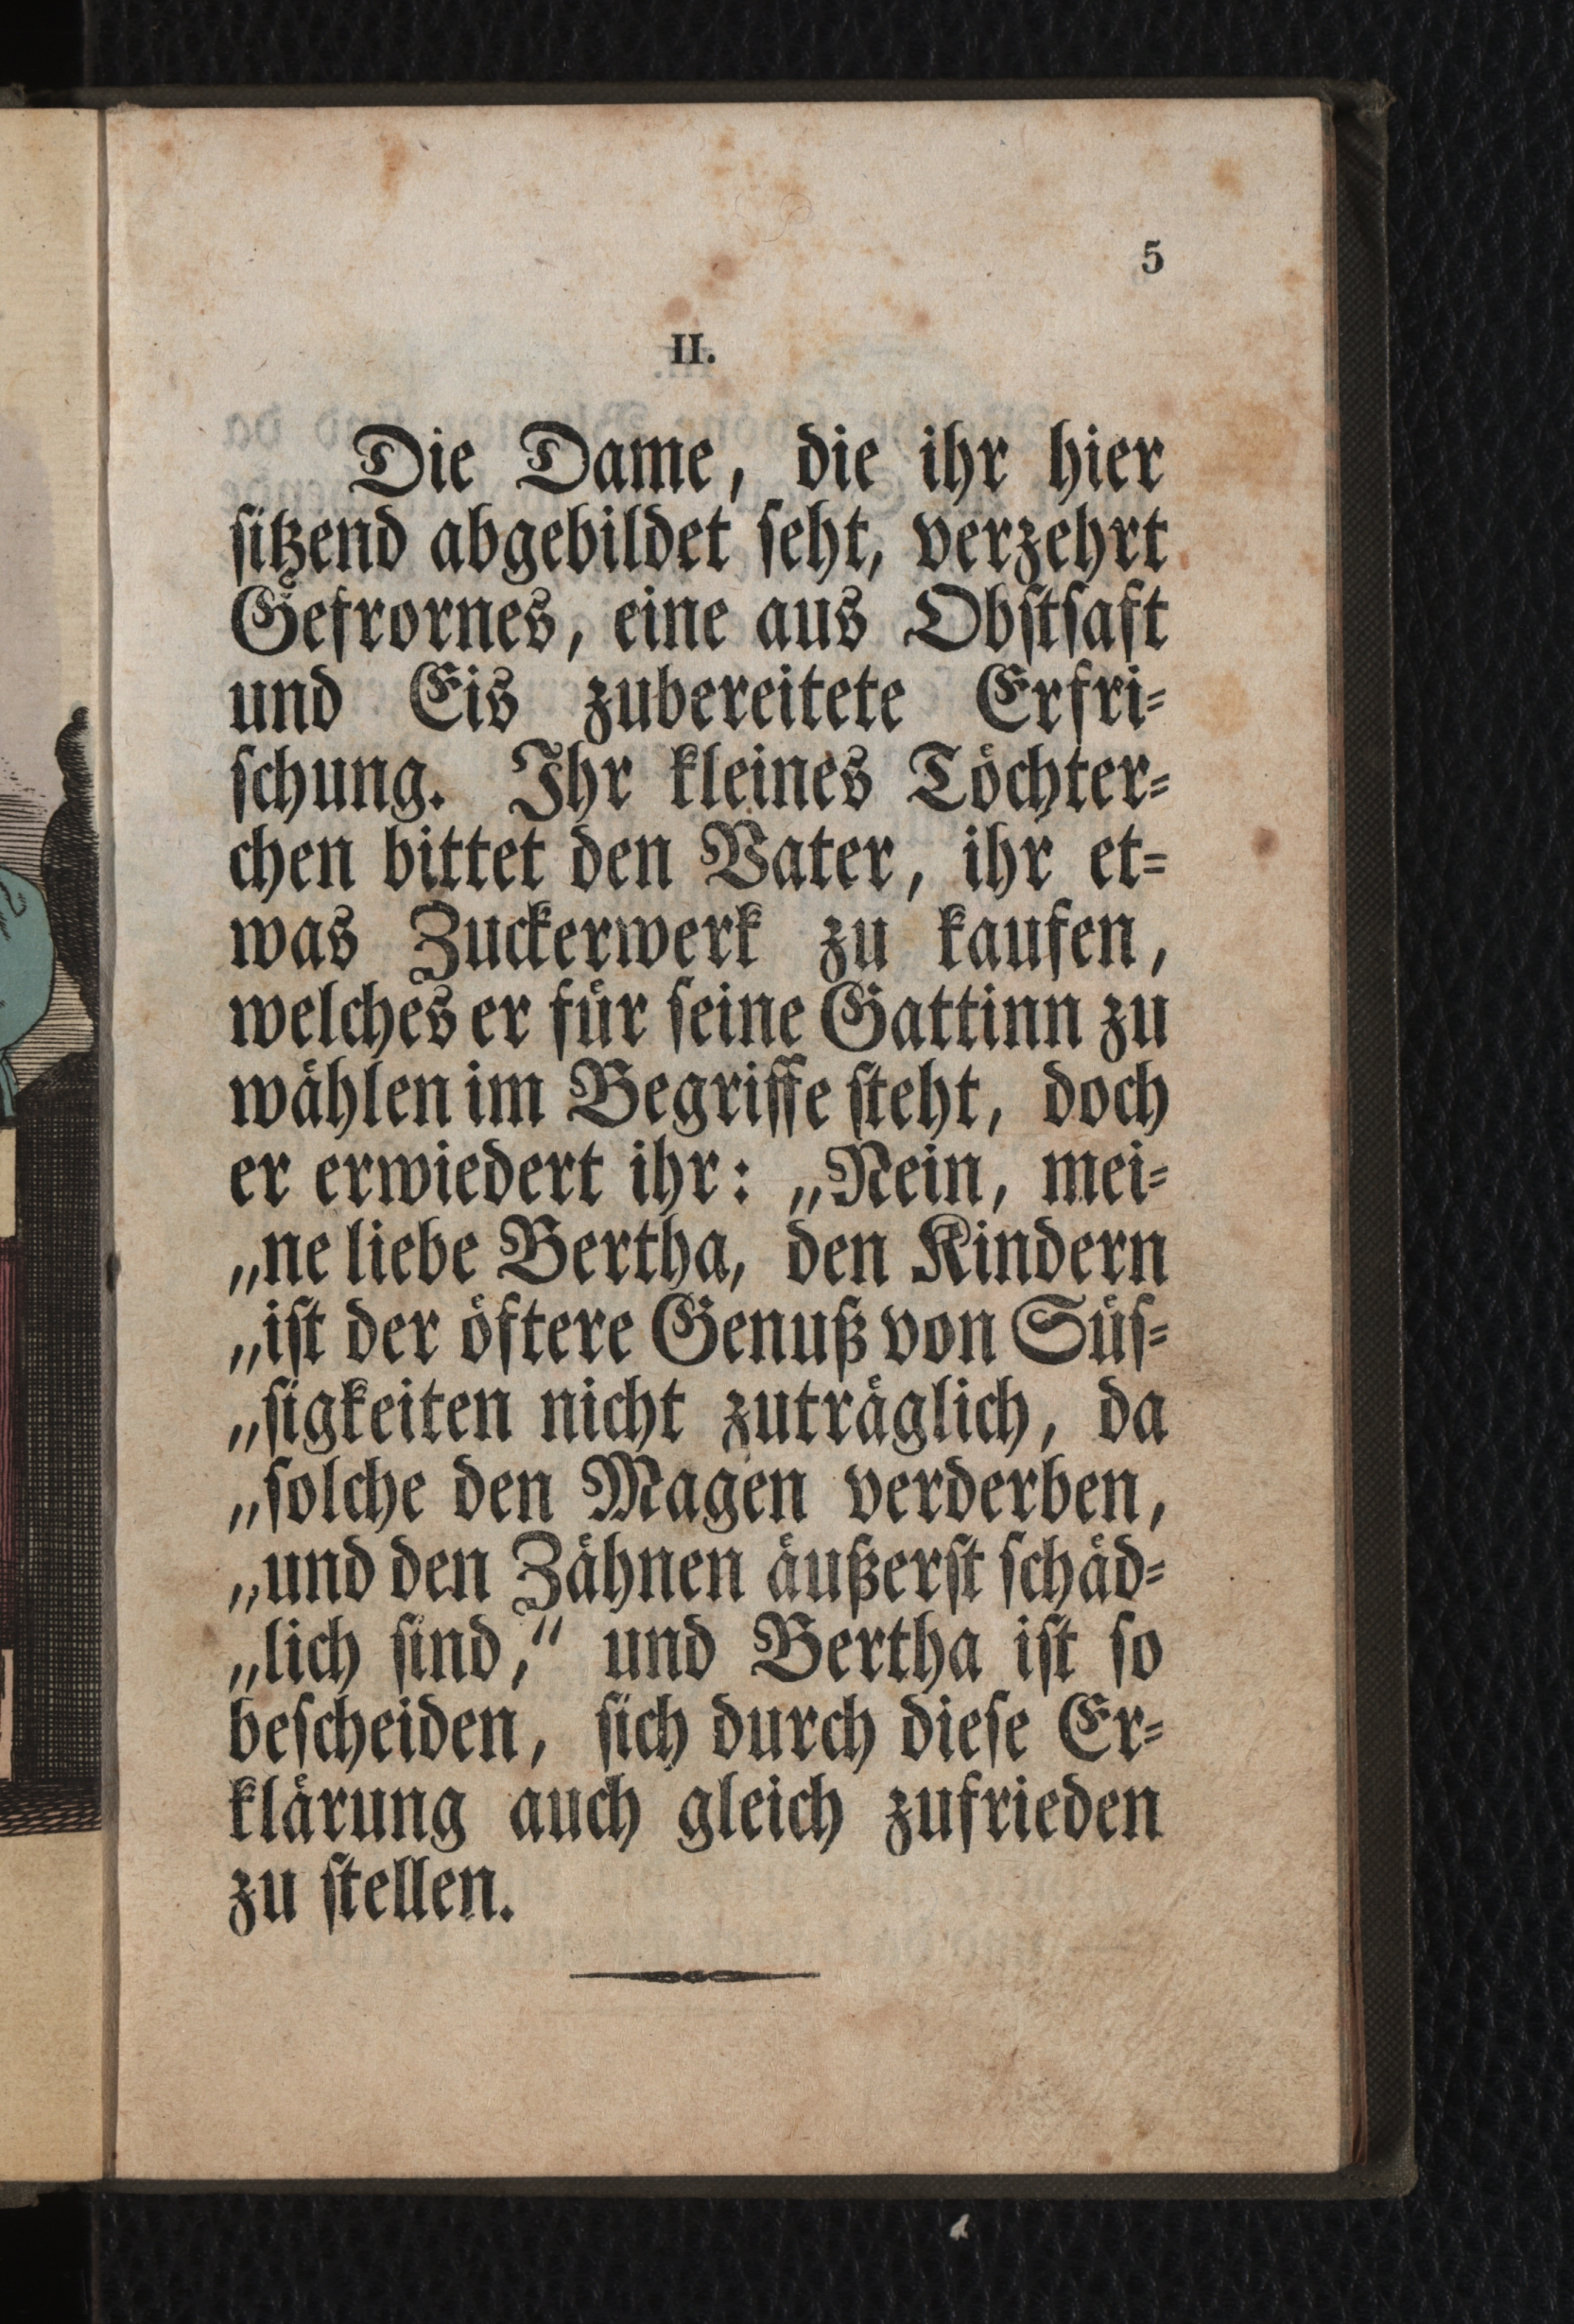 5
II.
Die Dame, die ihr hier
ſitzend abgebildet ſeht, verzehrt
Gefrornes, eine aus Obſtſaft
und Eis zubereitete Erfri⸗
ſchung. Ihr kleines Toͤchter⸗
chen bittet den Vater, ihr et⸗
was Zuckerwerk zu kaufen,
welches er fuͤr ſeine Gattinn zu
waͤhlen im Begriffe ſteht, doch
er erwiedert ihr: „Nein, mei⸗
„ne liebe Bertha, den Kindern
„iſt der oͤftere Genuß von Suͤſ⸗
„ſigkeiten nicht zutraͤglich, da
„ſolche den Magen verderben,
„und den Zaͤhnen aͤußerſt ſchaͤd⸗
„lich ſind,“ und Bertha iſt ſo
beſcheiden, ſich durch dieſe Er⸗
klaͤrung auch gleich zufrieden
zu ſtellen.